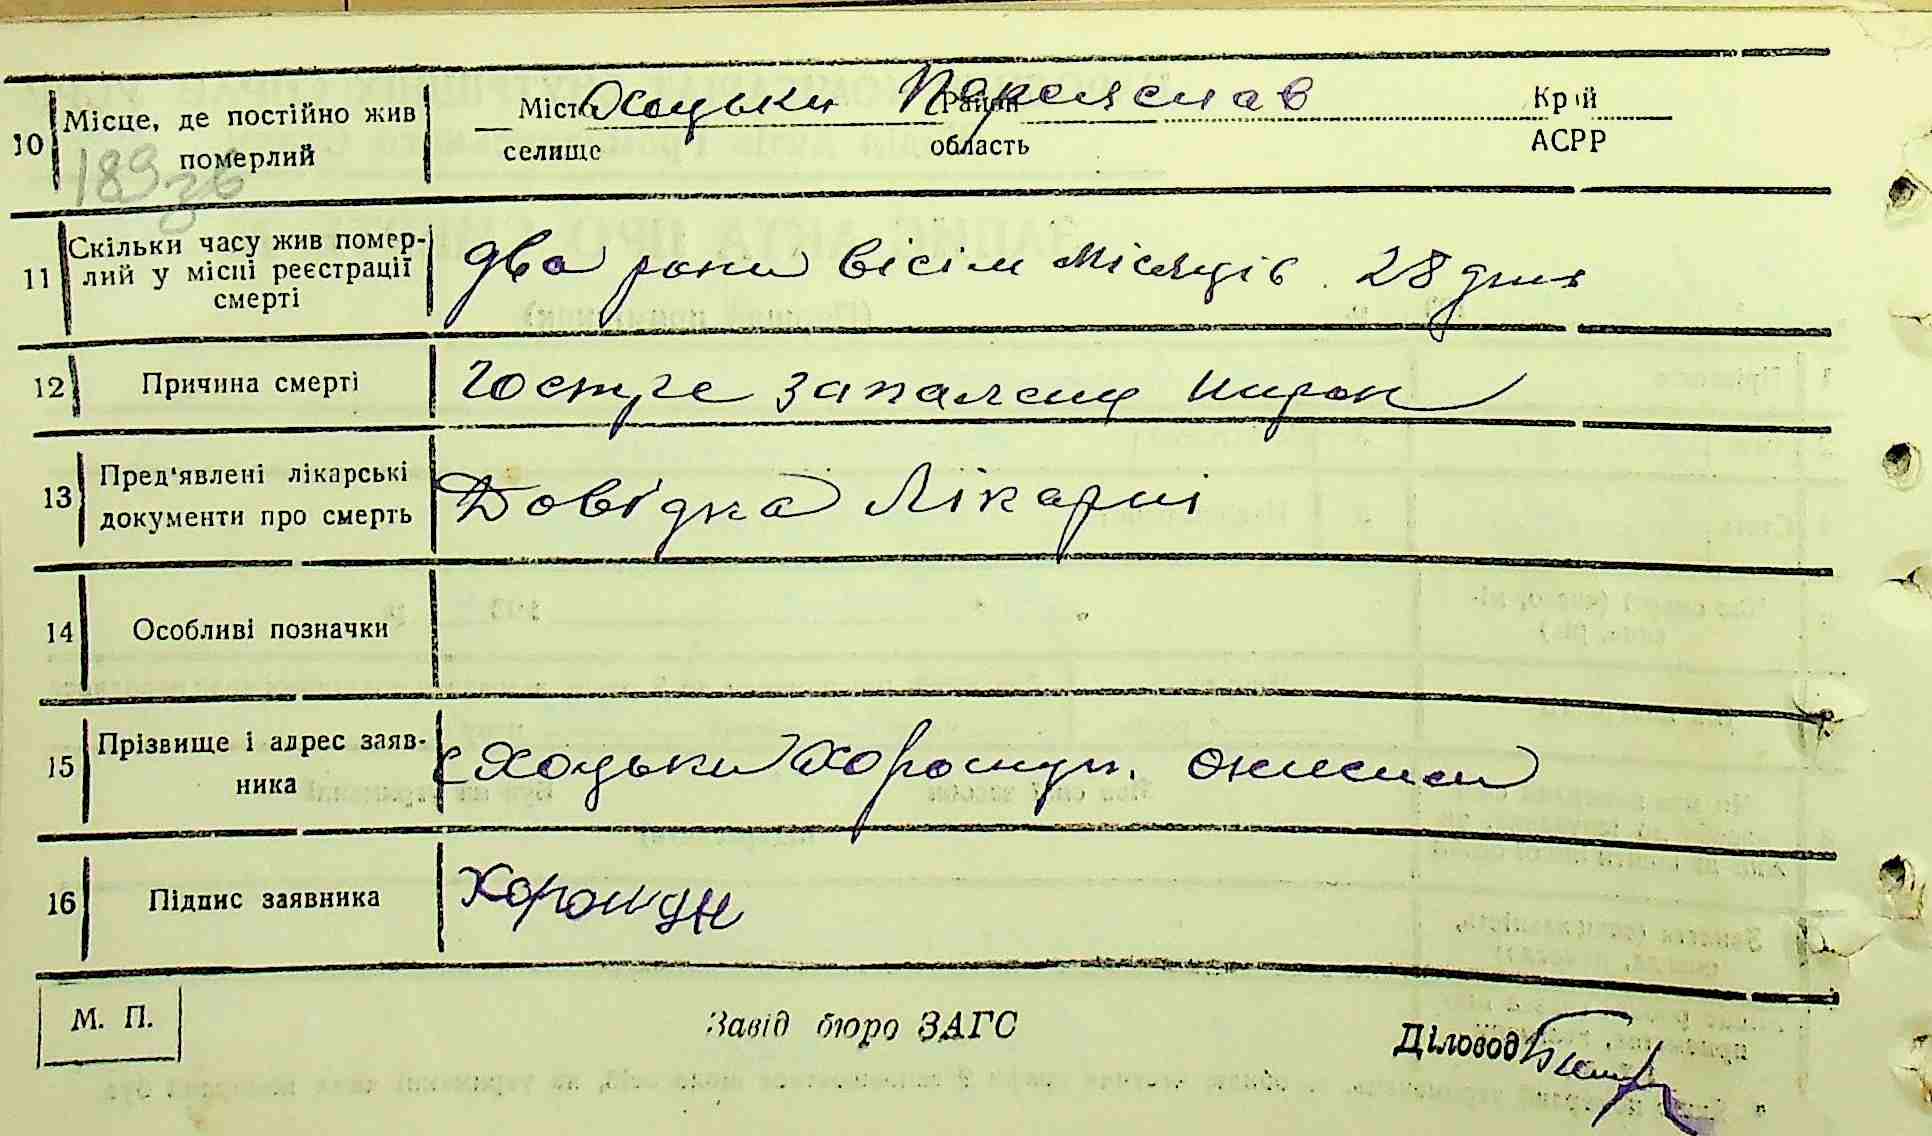 10 Місце, де постійно жив Місто Хоцьки Район Переяслав Край
померлий селище область АСРР
189зв
11 Скільки часу жив помер-
лий у місці реєстрації два роки вісім місяців 28 днів
смерті
12 Причина смерті Гостре запалення нирок
13 Пред'явлені лікарські
документи про смерть Довідка Лікарні
14 Особливі позначки
15 Прізвище і адрес заяв- с Хоцьки Хорошун.
ника
16 Підпис заявника Хорошун
М. П. Завід бюро ЗАГС Діловод